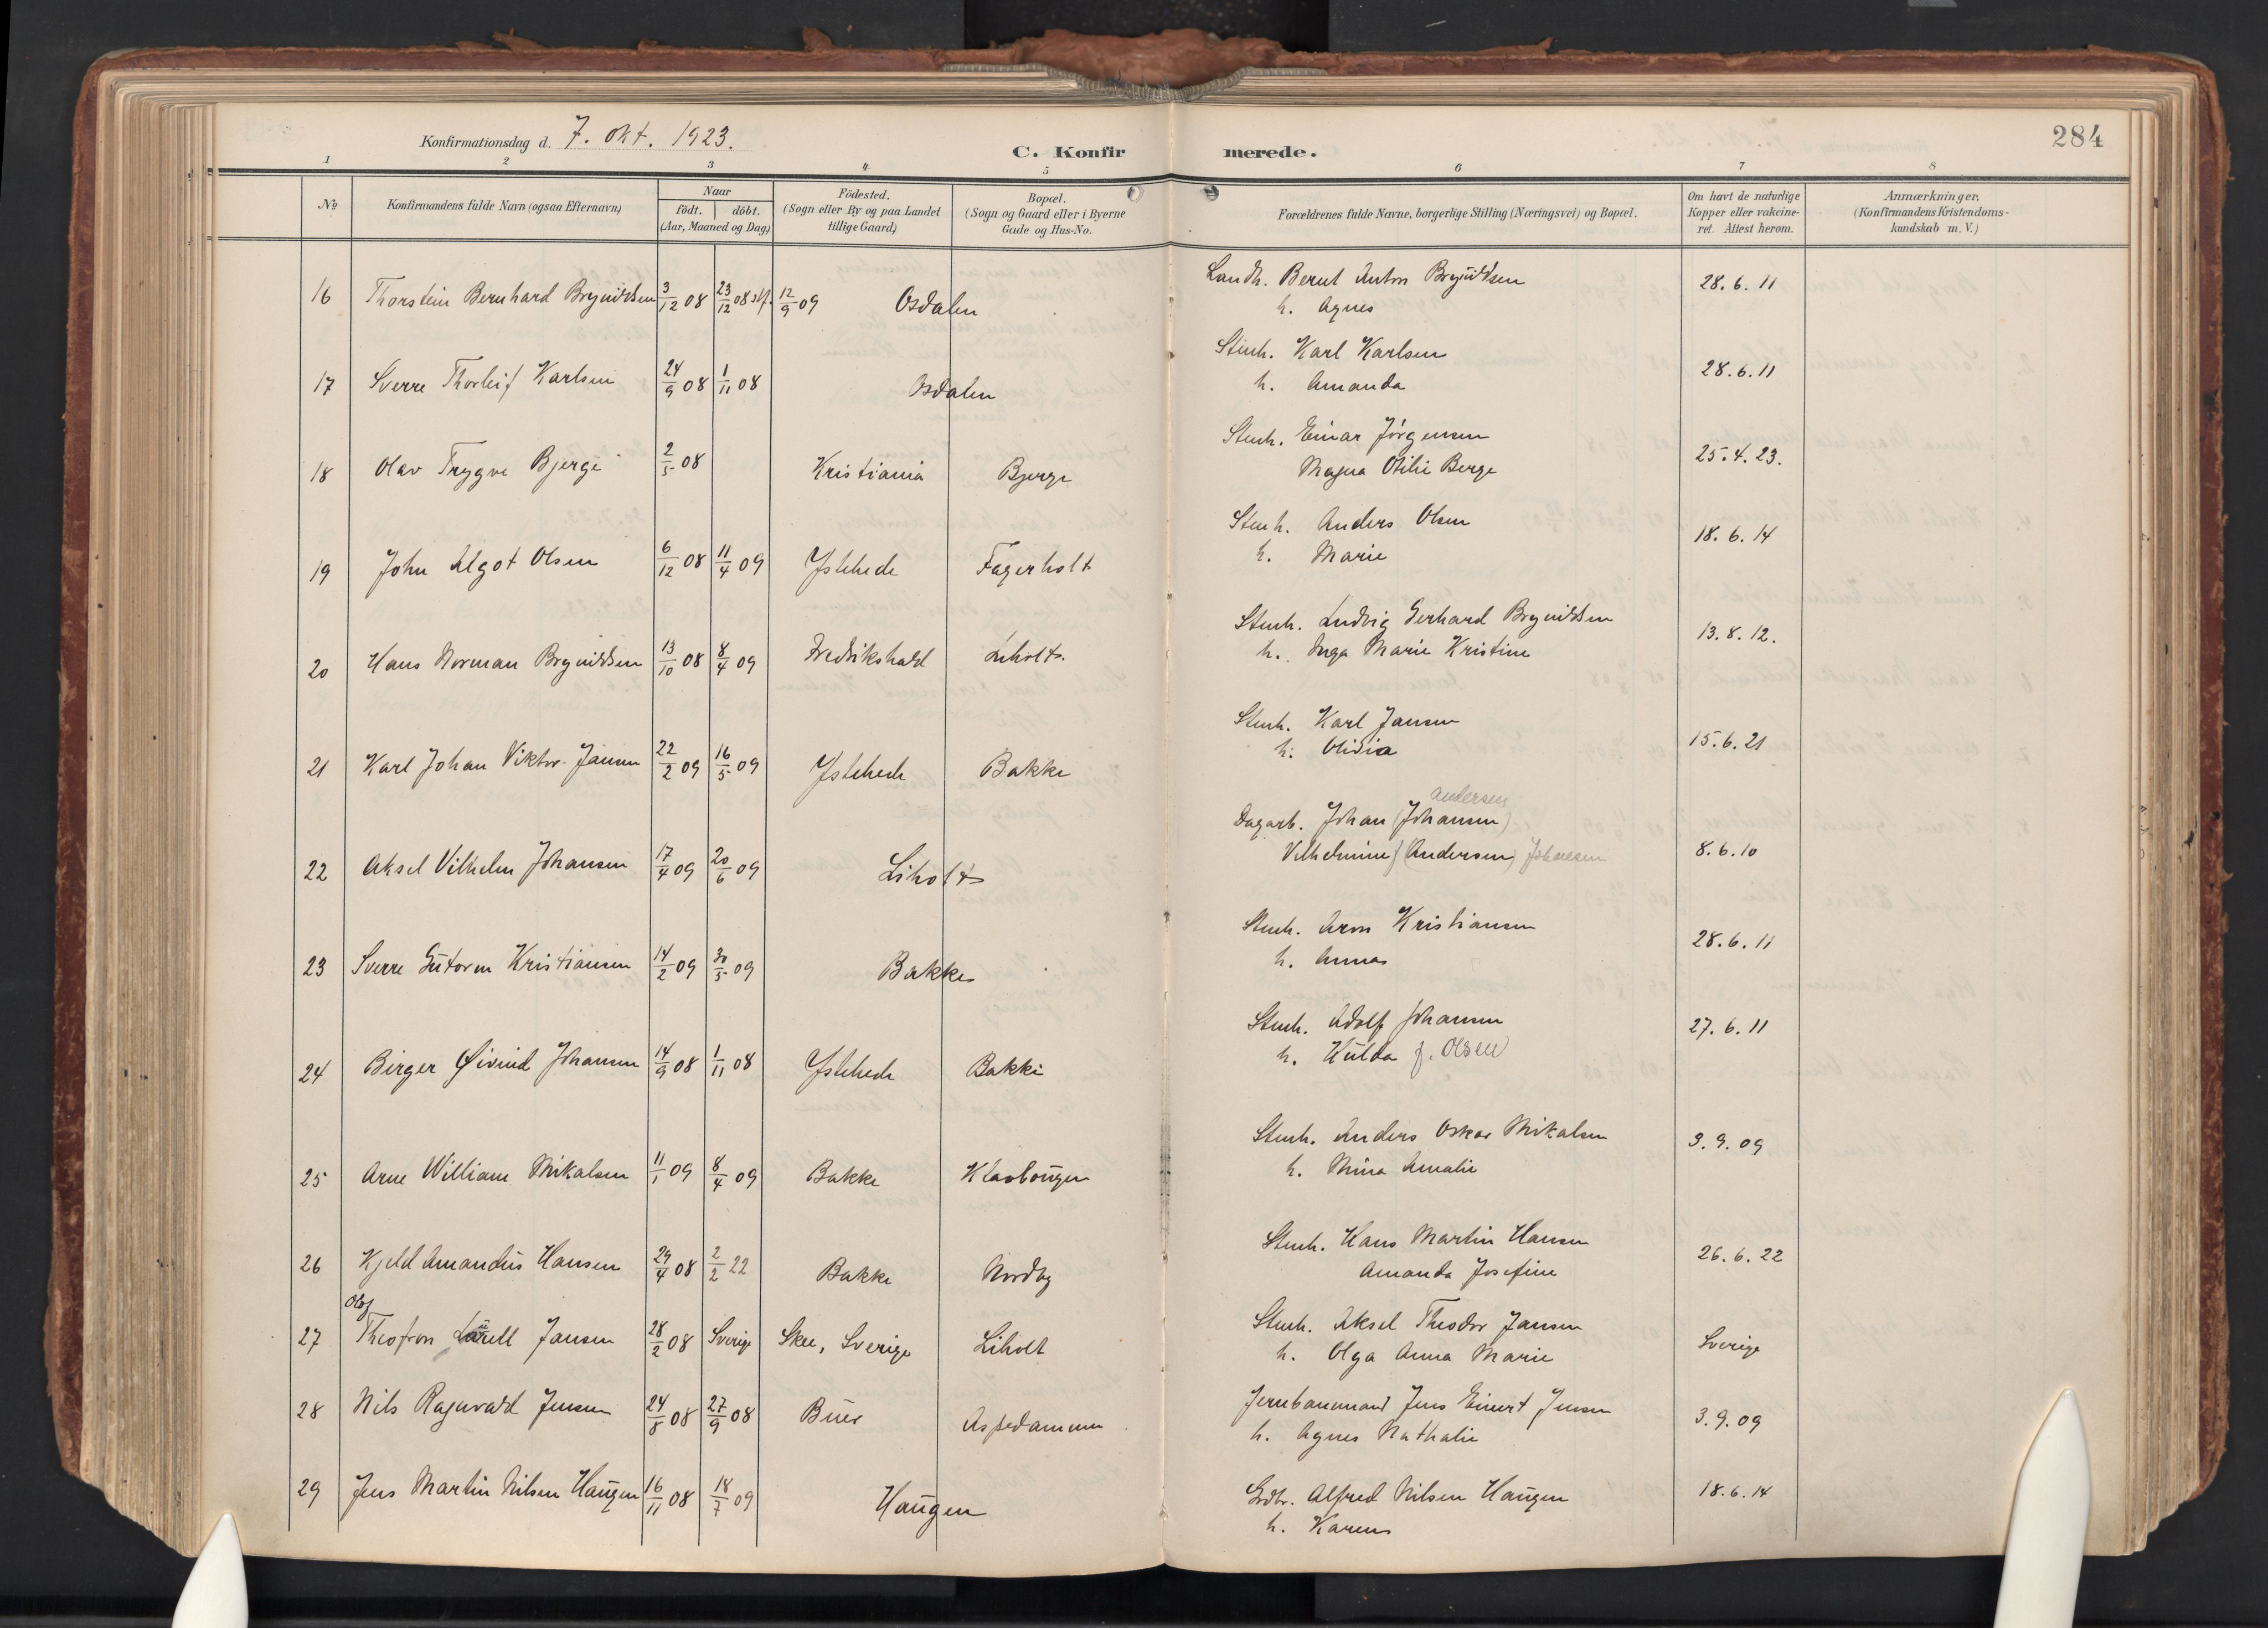 Konfirmationsdag d. 7. Okt. 1923.
C. Konfirmerede.
284
1 2 3 4 5 6 7 8
No
Konfirmandens fulde Navn (ogsaa Efternavn)
Naar
födt. | döbt.
(Aar, Maaned og Dag)
Födested.
(Sogn eller By og paa Landet
tillige Gaard)
Bopæl.
(Sogn og Gaard eller i Byerne
Gade og Hus-No.
Forældrenes fulde Navne, borgerlige Stilling (Næringsvei) og Bopæl.
Om havt de naturlige
Kopper eller vakcine-
ret. Attest herom.
Anmærkninger,
(Konfirmandens Kristendoms-
kundskab m. V.)
16 Thorstein Bernhard Bryнildsen 3/12 08 23/12 08 stf. 12/9 09 Osdalen Landh. Bernt Anton Brynildsen 28.6.11
h. Agnes
17 Sverre Thorleif Karlsen 24/9 08 1/11 08 Osdalen Stenh. Karl Karlsen 28.6.11
h. Amanda
18 Olav Trygve Bjerge 2/5 08 Kristiania Bjerge Stenh. Einar Jörgensen 25.4.23.
Magna Otilie Berge
19 John Algot Olsen 6/12 08 11/4 09 Istehede Fagerholt Stenh. Anders Olsen 18.6.14
h. Marie
20 Hans Norman Brynildsen 13/10 08 8/4 09 Fredrikshald Liholt Stenh. Ludvig Gerhard Brynildsen 13.8.12.
h. Inga Marie Kristine
21 Karl Johan Viktor Jansen 22/2 09 16/5 09 Istehede Bakke Stenh. Karl Jansen 15.6.21
h. Olidia
22 Aksel Vilhelm Johansen 17/4 09 20/6 09 Liholt Dagarb. Johan (Johansen) Andersen 8.6.10
Vilhelmine (Andersen) Johansen
23 Sverre Gutorm Kristiansen 14/2 09 30/5 09 Bakke Stenh. Aron Kristiansen 28.6.11
h. Anna
24 Birger Øivind Johansen 14/9 08 1/11 08 Istehede Bakke Stenh. Adolf Johansen 27.6.11
h. Hulda f. Olsen
25 Arne William Mikalsen 11/1 09 8/4 09 Bakke Klavbougen Stenh. Anders Oskar Mikalsen 3.9.09
h. Mina Amalie
26 Kjeld Amandus Hansen 29/4 08 2/2 22 Bakke Nordby Stenh. Hans Martin Hansen 26.6.22
Amanda Josefine
Olof
27 Theofron Jansen 28/2 08 Sverige Skee, Sverige Liholt Stenh. Aksel Theodor Jansen Sverige
h. Olga Anna Marie
28 Nils Ragnvald Jensen 24/8 08 27/9 08 Buer Aspedammen Jernbanemand Jens Einert Jensen 3.9.09
h. Agnes Nathalie
29 Jens Martin Nilsen Haugen 16/11 08 18/7 09 Haugen Grdbr. Alfred Nilsen Haugen 18.6.14
h. Karen